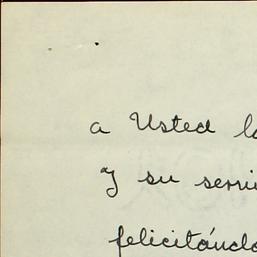 a Usted l
y su servi
felicitándo